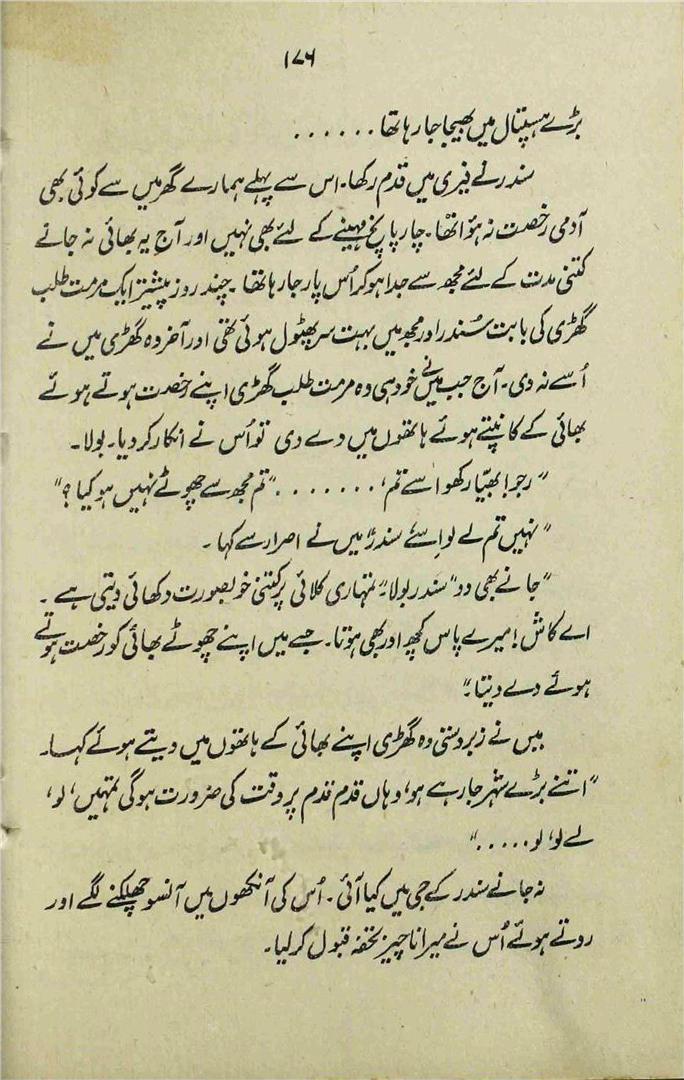 ۱۷۶
بڑے ہسپتال میں بھیجا جا رہا تھا ۔ ۔ ۔ ۔ ۔ ۔
سندر نے فیری میں قدم رکھا۔ اس سے پہلے ہمارے گھر میں سے کوئی بھی
آدمی رخصت نہ ہؤا تھا۔ چار پانچ مہینے کے لئے بھی نہیں اور آج یہ بھائی نہ جانے
کتنی مدت کے لئے مجھ سے جدا ہو کر اُس پار جا رہا تھا۔ چند روز پیشتر ایک مرمت طلب
گھڑی کی بابت سُندر اور مجھ میں بہت سر پھٹول ہوئی تھی اور آخر وہ گھڑی میں نے
اُسے نہ دی۔ آج جب میں نے خود ہی وہ مرمت طلب گھڑی اپنے رخصت ہوتے ہوئے
بھائی کے کانپتے ہوئے ہاتھوں میں دے دی تو اُس نے انکار کر دیا۔ بولا۔
"رجرا بھیّا رکھو اسے تم، ۔ ۔ ۔ ۔ ۔ ۔ ۔ "تم مجھ سے چھوٹے نہیں ہو کیا؟"
"نہیں تم لے لو اسے سندر" میں نے اصرار سے کہا۔
"جانے بھی دو" سندر بولا "تمہاری کلائی پر کتنی خوبصورت دکھائی دیتی ہے۔
اے کاش! میرے پاس کچھ اور بھی ہوتا۔ جسے میں اپنے چھوٹے بھائی کو رخصت ہوتے
ہوئے دے دیتا۔"
میں نے زبردستی وہ گھڑی اپنے بھائی کے ہاتھوں میں دیتے ہوئے کہا۔
"اتنے بڑے شہر جا رہے ہو، وہاں قدم قدم پر وقت کی ضرورت ہوگی تمہیں، لو،
لے لو، لو ۔ ۔ ۔ ۔ ۔"
نہ جانے سندر کے جی میں کیا آئی۔ اُس کی آنکھوں میں آنسو چھلکنے لگے اور
روتے ہوئے اُس نے میرا ناچیز تحفہ قبول کر لیا۔